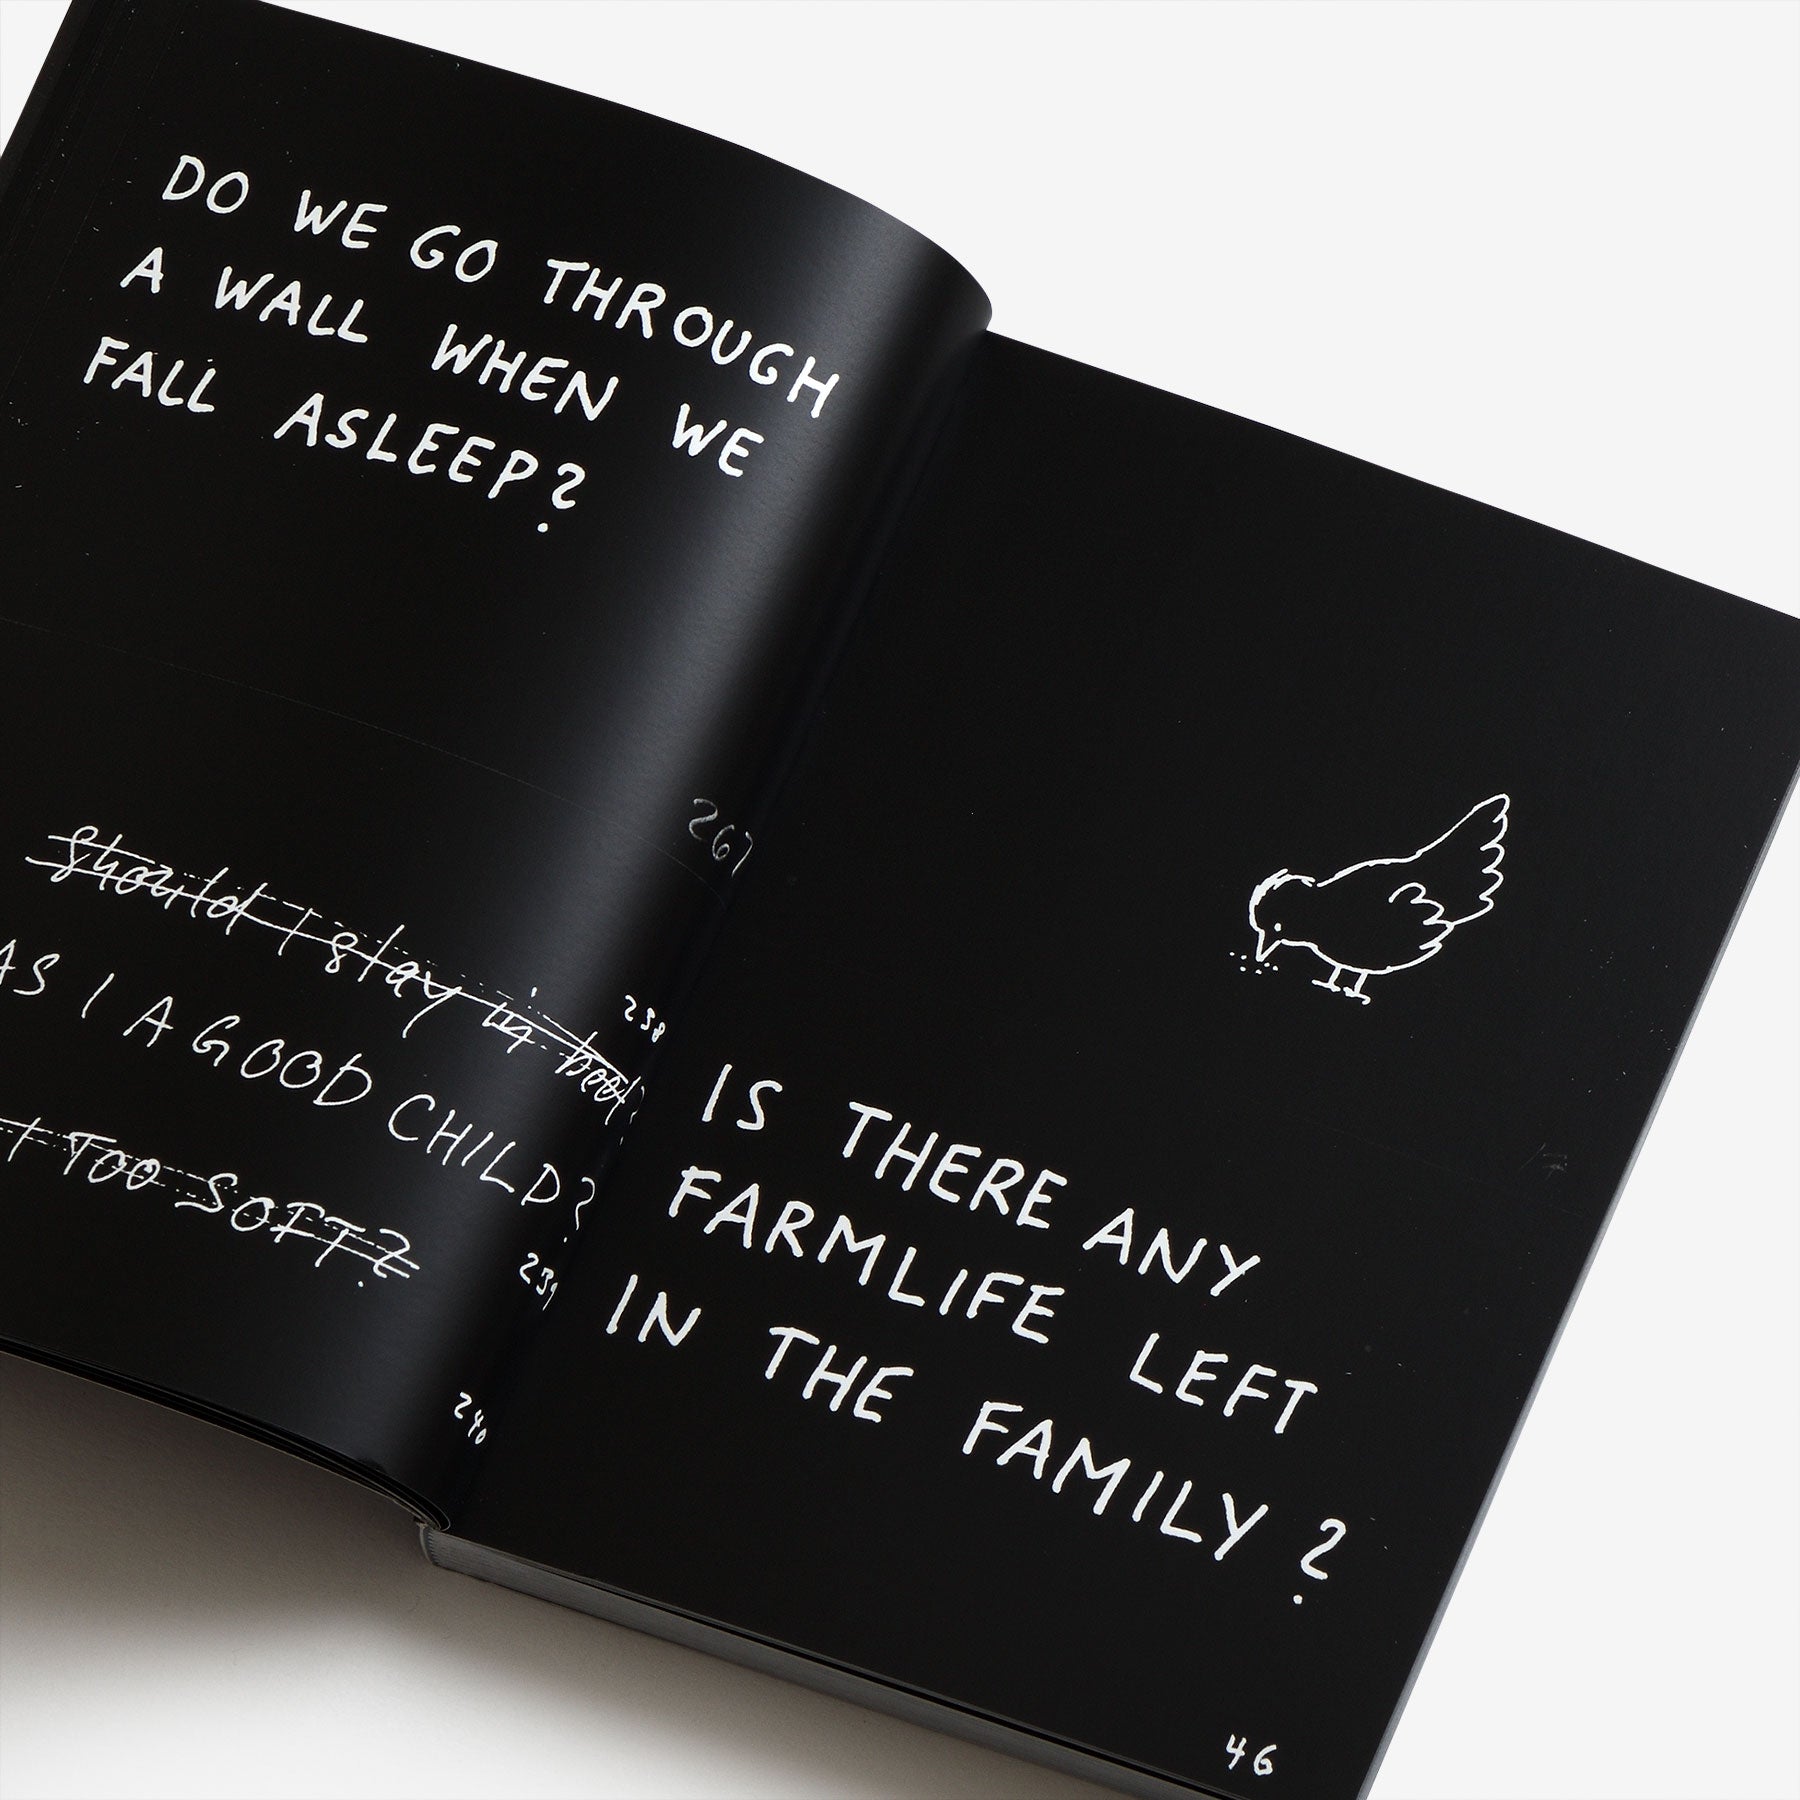 DO WE GO THROUGH
A WALL WHEN WE
FALL ASLEEP?
267
should I stay in bed?
238
AS I A GOOD CHILD?
239
I TOO SOFT?
240
IS THERE ANY
FARMLIFE LEFT
IN THE FAMILY?
46